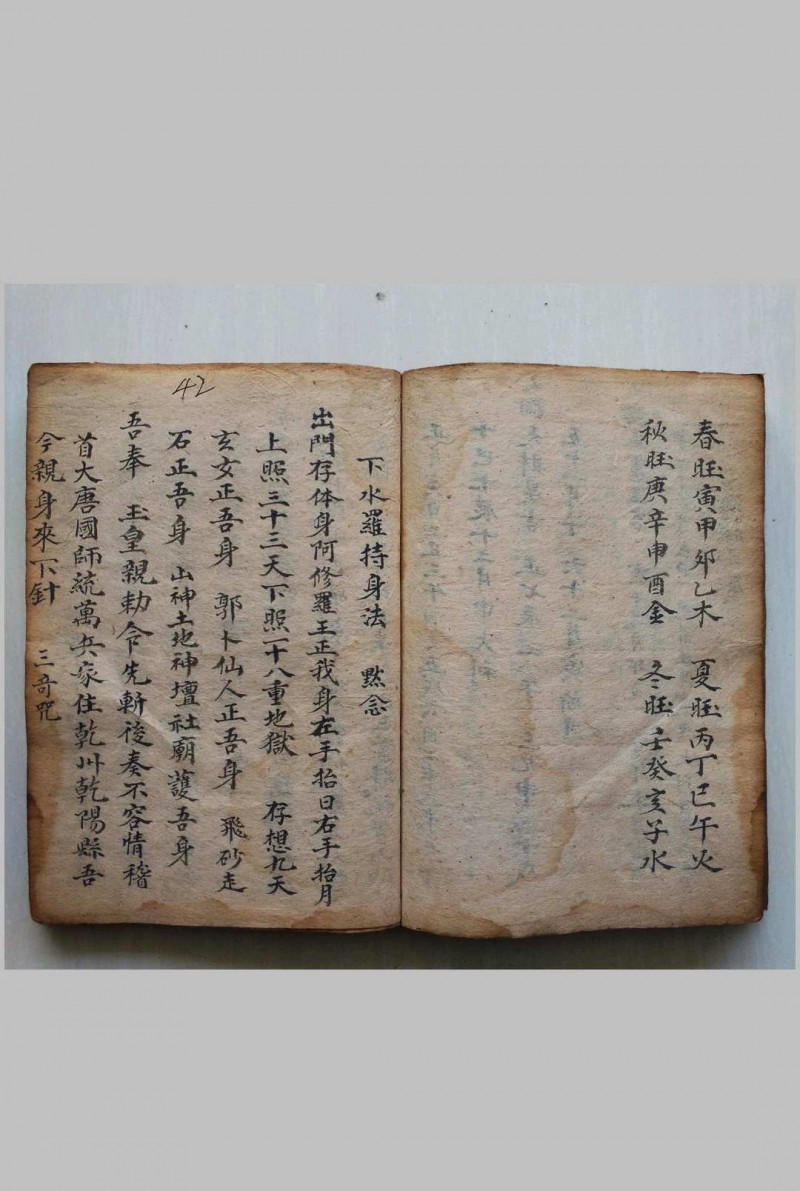 春旺寅甲卯乙木 夏旺丙丁巳午火
秋旺庚辛申酉金 冬旺壬癸亥子水
下水羅持身法 黙念
出門存体身阿修羅王正我身在手抬日右手抬月
上照三十三天下照一十八重地獄 存想九天
玄女正吾身 郭卜仙人正吾身 飛砂走
石正吾身 山神土地神壇社廟護吾身
吾奉 玉皇親勅令先斬後奏不容情稽
首大唐國師統萬兵家住乾州乾陽縣吾
今親身來下針 三奇咒
42